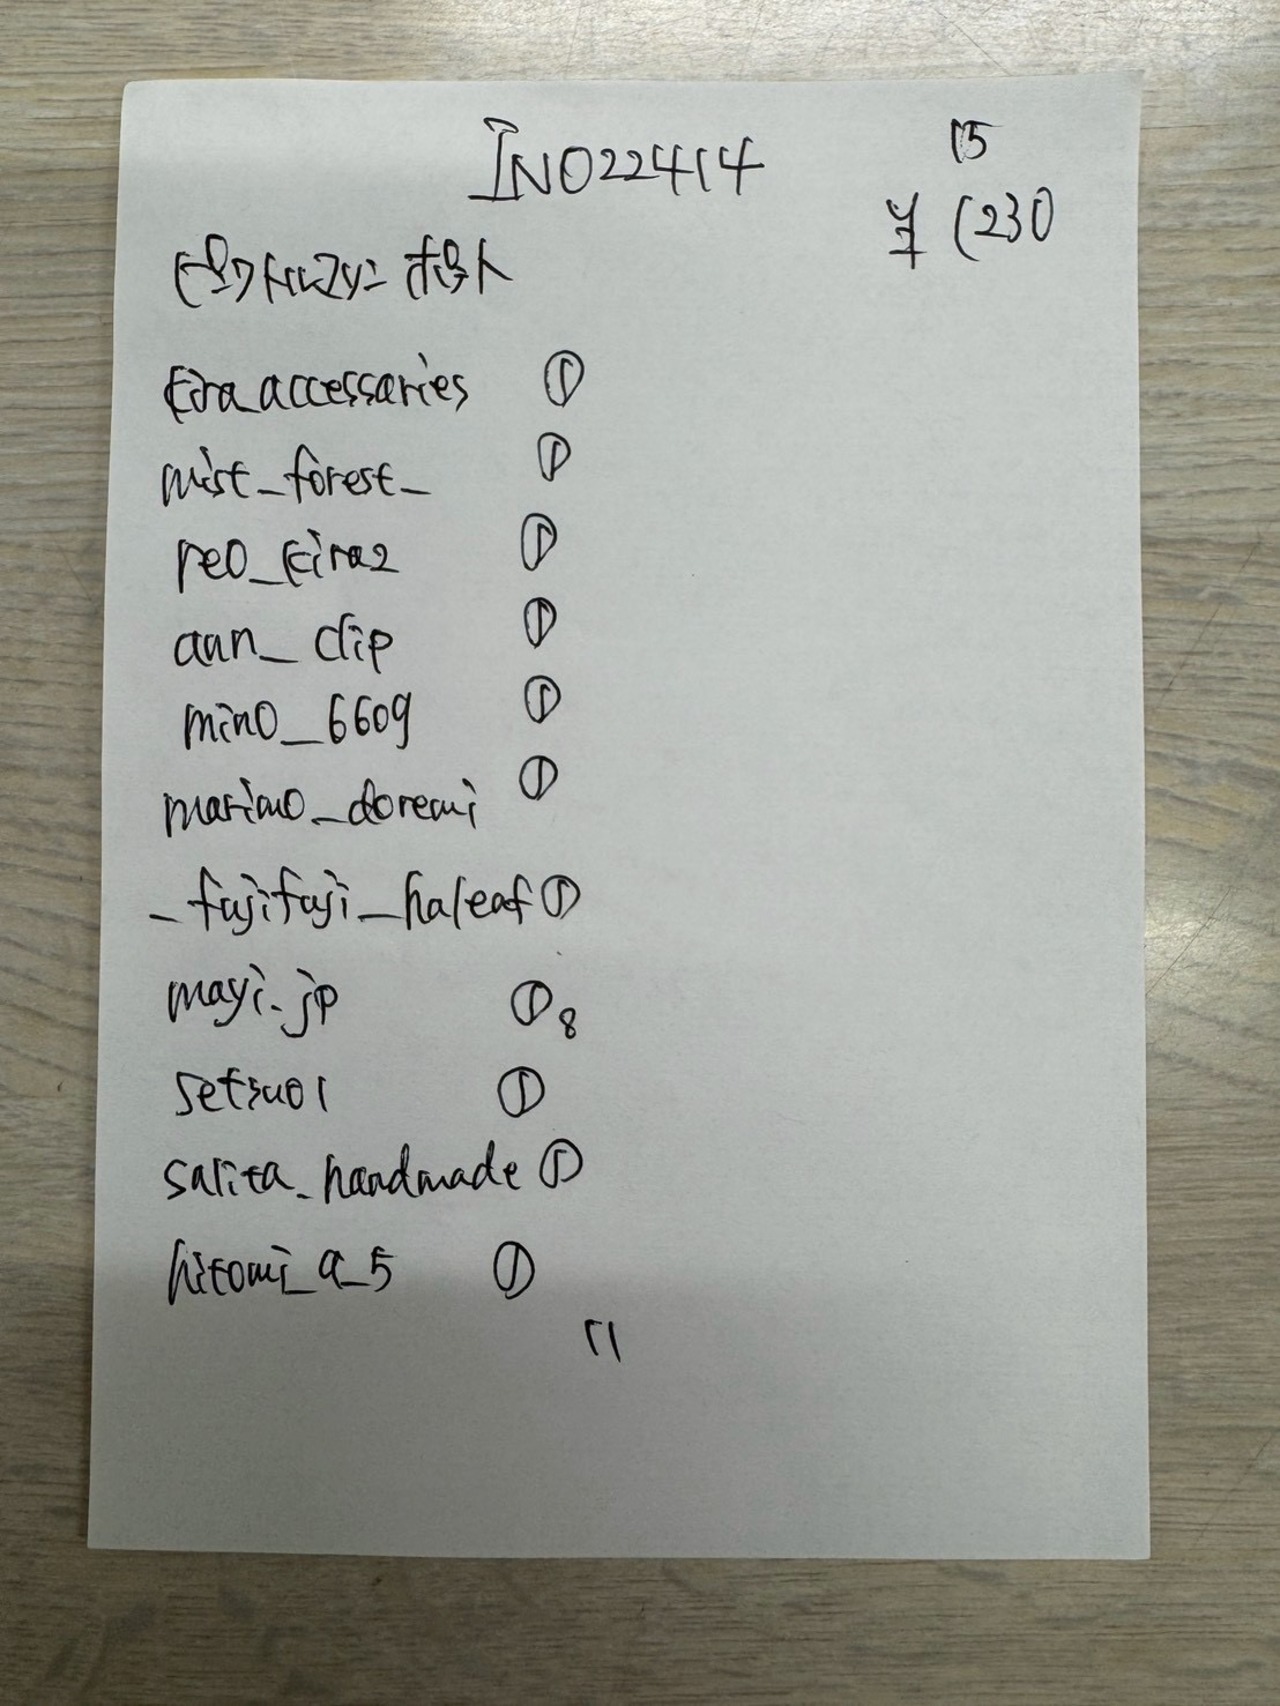 INO22414
15
¥ 1230
Eira_accessaries ①
mist_forest_ ①
reo_Eira2 ①
aun_clip ①
mino_6609 ①
marimo_doremi ①
_fujifuji_haleaf ①
mayi.jp ① 8
setsuo1 ①
salita_handmade ①
hitomi_a_5 ①
11